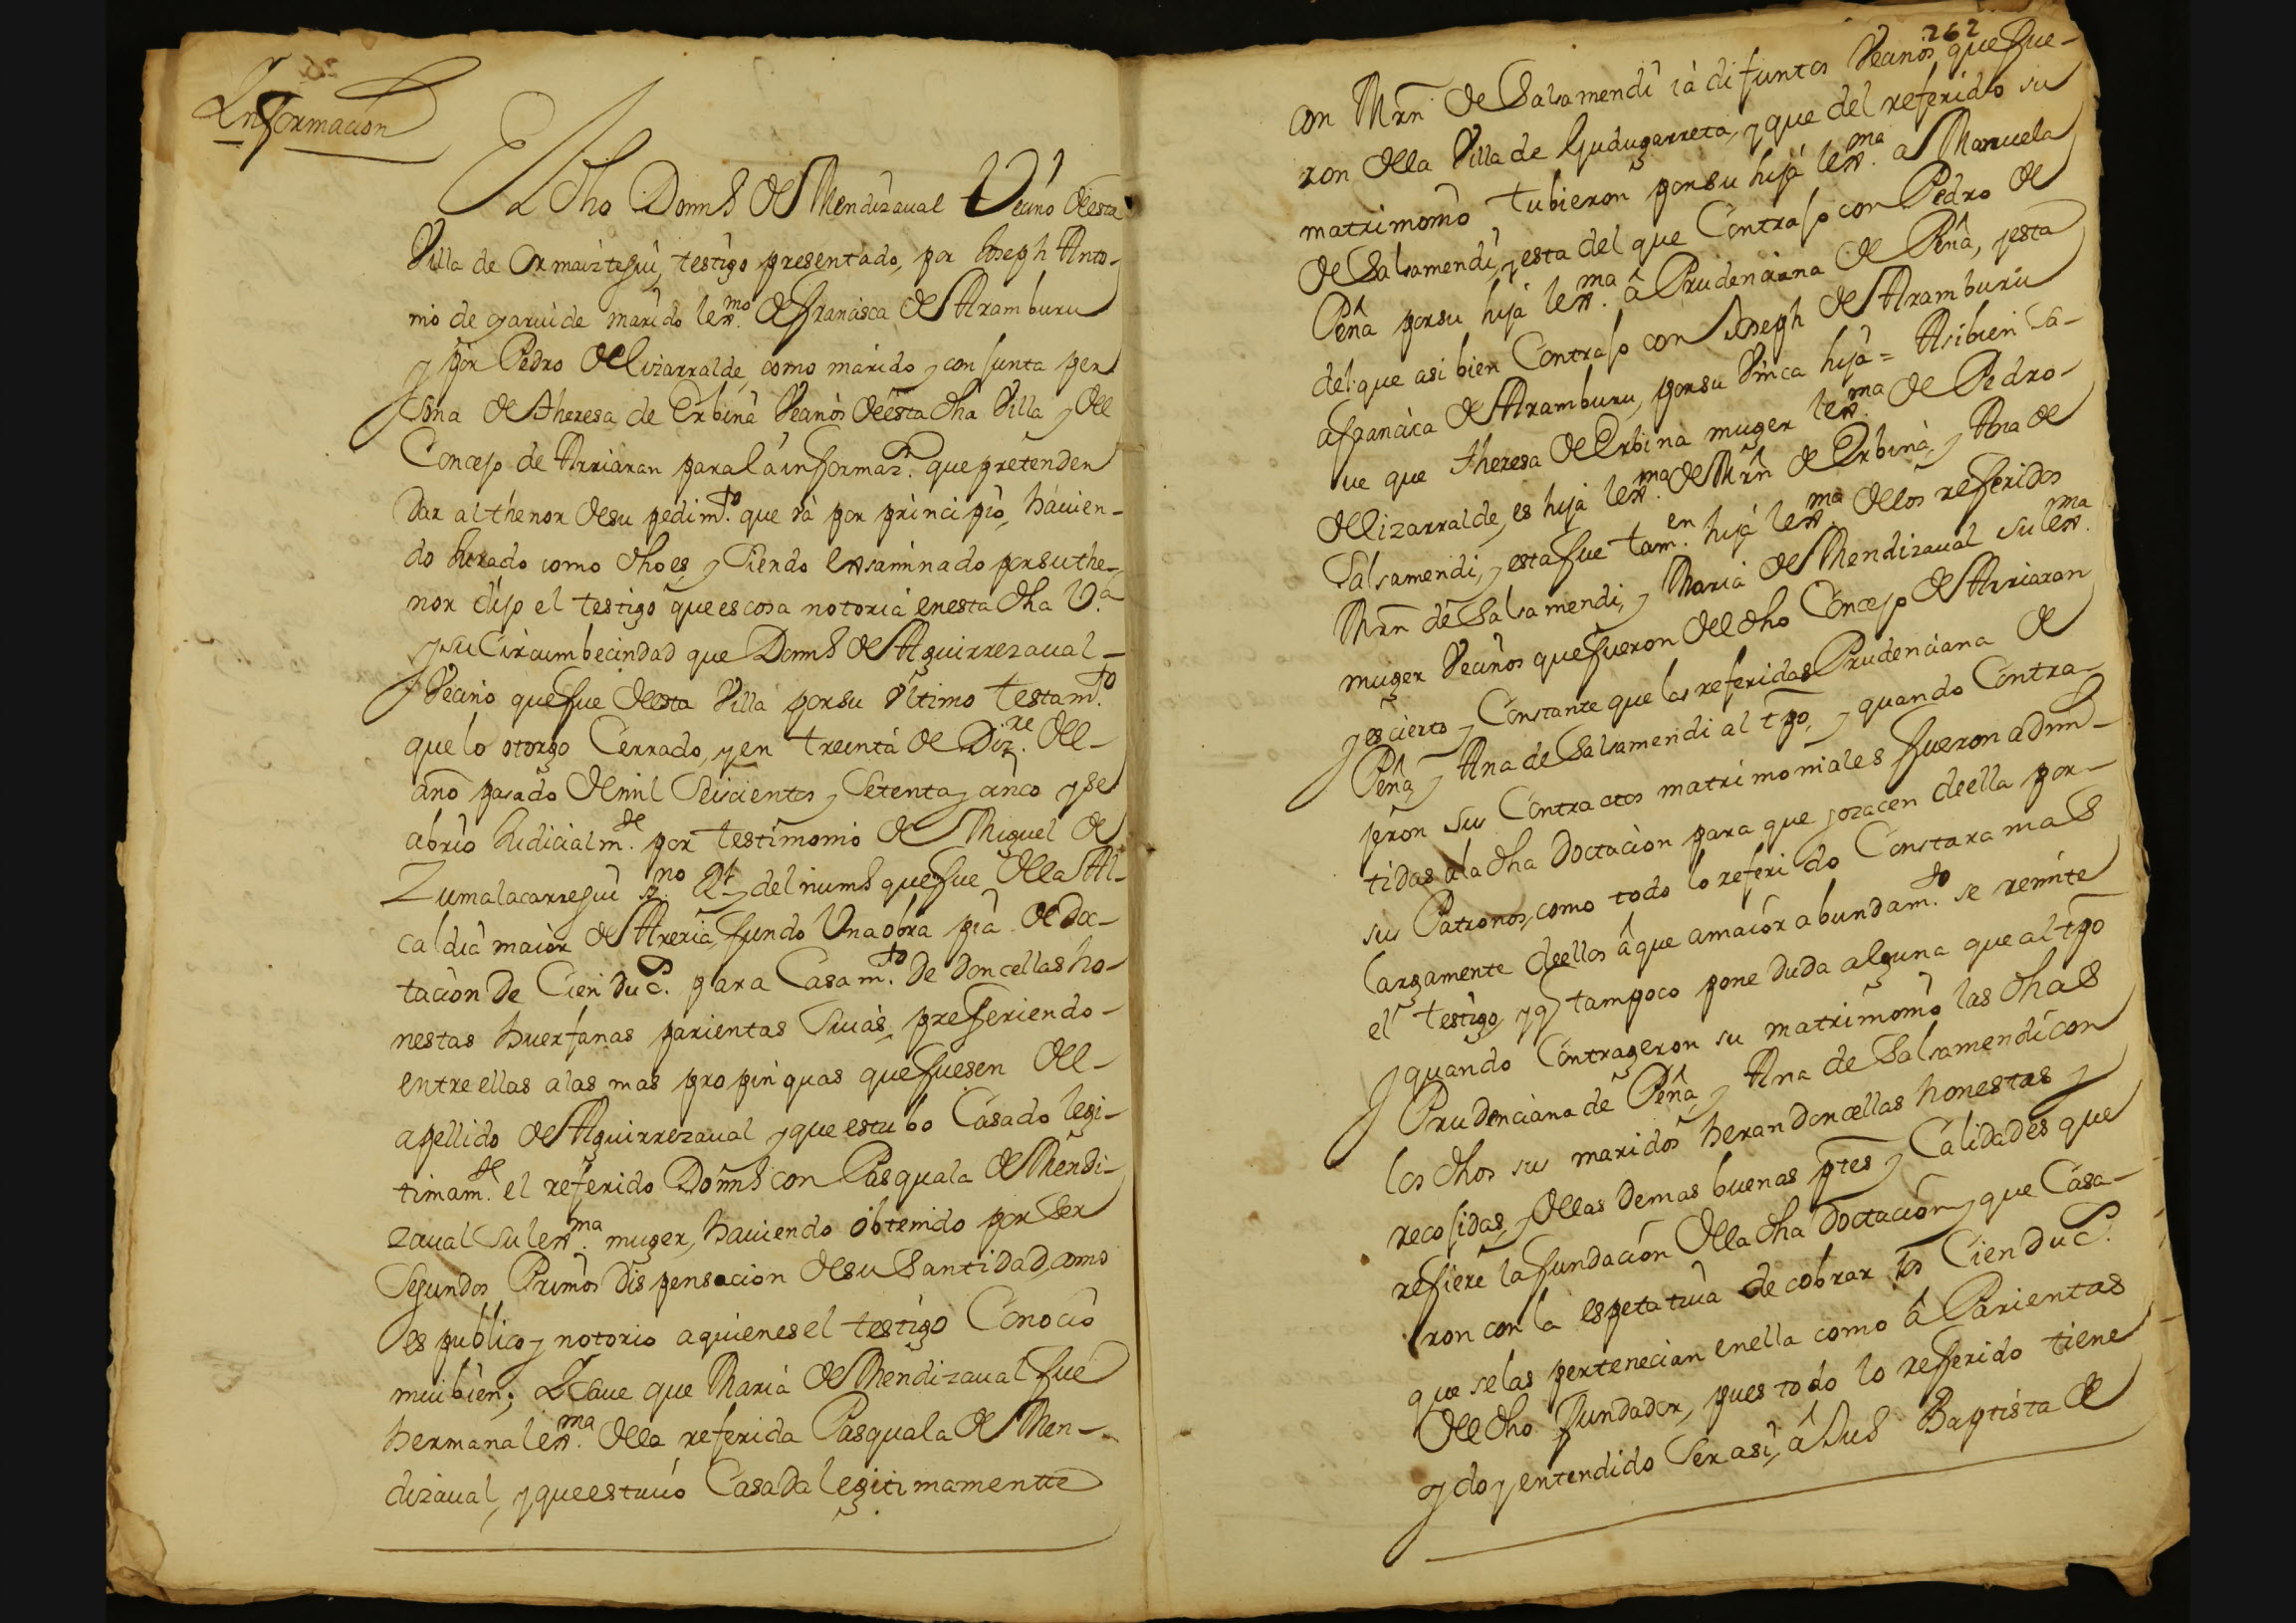 Informacion
El dho Domĩs de Mendizaual Vecino de esta
Villa de Ormaiztegui, testigo presentado, por Joseph Anto-
nio de garuide marido lexmo. de francisca de Aramburu
y por Pedro de lizarralde, como marido y conjunta per
sona de Theresa de Erbina Vecinos de esta dha Villa y del
Concejo de Arriaran para la informaz. que pretenden
Dar al thenor de su pedimto. que ba por principio, hauien-
do Jurado como dho es, y siendo exsaminado por su the-
nor dijo el testigo que es cosa notoria en esta dha Va.
y su Circumbecindad que Domĩs de Aguirrezaual
Vecino que fue de esta Villa por su último testamto.
que lo otorgo Cerrado, y en treinta de Dizre. del
año pasado de mil seiscientos y setenta y cinco y se
abrio Judicialmte. por testimonio de Miguel de
Zumalacarregui sno. Rl. y del nums que fue de la Al-
caldia maior de Areria, fundo Una obra pia de do-
tacion De Cien Ducs. para Casamto. de doncellas ho-
nestas huerfanas parientas suias, prefferiendo
entre ellas a las mas propinquas que fuesen del
apellido de Aguirrezaual y que estubo Casado legi-
timamte. el referido Domĩs con Pasquala de Mendi-
zaual su lexma. muger, hauiendo obtenido por ser
segundos Primos Dispensacion de su Santidad, como
es publico y notorio a quienes el testigo Conocio
mui bien; Y saue que Maria de Mendizaual fue
hermana lexma. de la referida Pasquala de Men-
dizaual, y que estuuo Casada legitimamente
262
con Mrñ de Salsamendi ia difuntos Vecinos que fue-
ron de la Villa de Gudugarreta, y que del referido su
matrimonio tubieron por su hija lexma. a Manuela
de Salsamendi, y esta del que Contrajo con Pedro de
Peña por su hija lexma. â Prudenciana de Peña, y esta
del que asi bien Contrajo con Joseph de Aramburu
a francisca de Aramburu, por su Vnica hija = Asi bien sa-
ue que Theresa de Erbina muger lexma. de Pedro
de lizarralde, es hija lexma. de Mrñ de Erbina, y Ana de
Salsamendi, y esta fue tamen. hija lexma. de los referidos
Mrñ de Salsamendi, y Maria de Mendizaual su lexma.
muger Vecinos que fueron del dho Concejo de Arriaran
y es cierto y Constante que las referidas Prudenciana de
Peña y Ana de Salsamendi al tpo, y quando Contra-
jeron sus Contractos matrimoniales fueron admi-
tidas a la dha Doctacion para que gozacen de ella por
sus Patronos, como todo lo referido Constara mas
largamente de ellos â que a maior abundamto. se remite
el testigo, y q̃ tampoco pone duda alguna que al tpo
y quando Contrageron su matrimonio las dhas
Prudenciana de Peña, y Ana de Salsamendi con
los dhos sus maridos heran doncellas honestas y
recojidas, y de las demas buenas ptes y Calidades que
refiere la fundacion de la dha Doctacion y que Casa-
ron con la espetatiua de cobrar los Cien Ducs.
que se las pertenecian en ella como â Parientas
del dho fundador, pues todo lo referido tiene
oydo y entendido ser asi, â Jus Baptista de